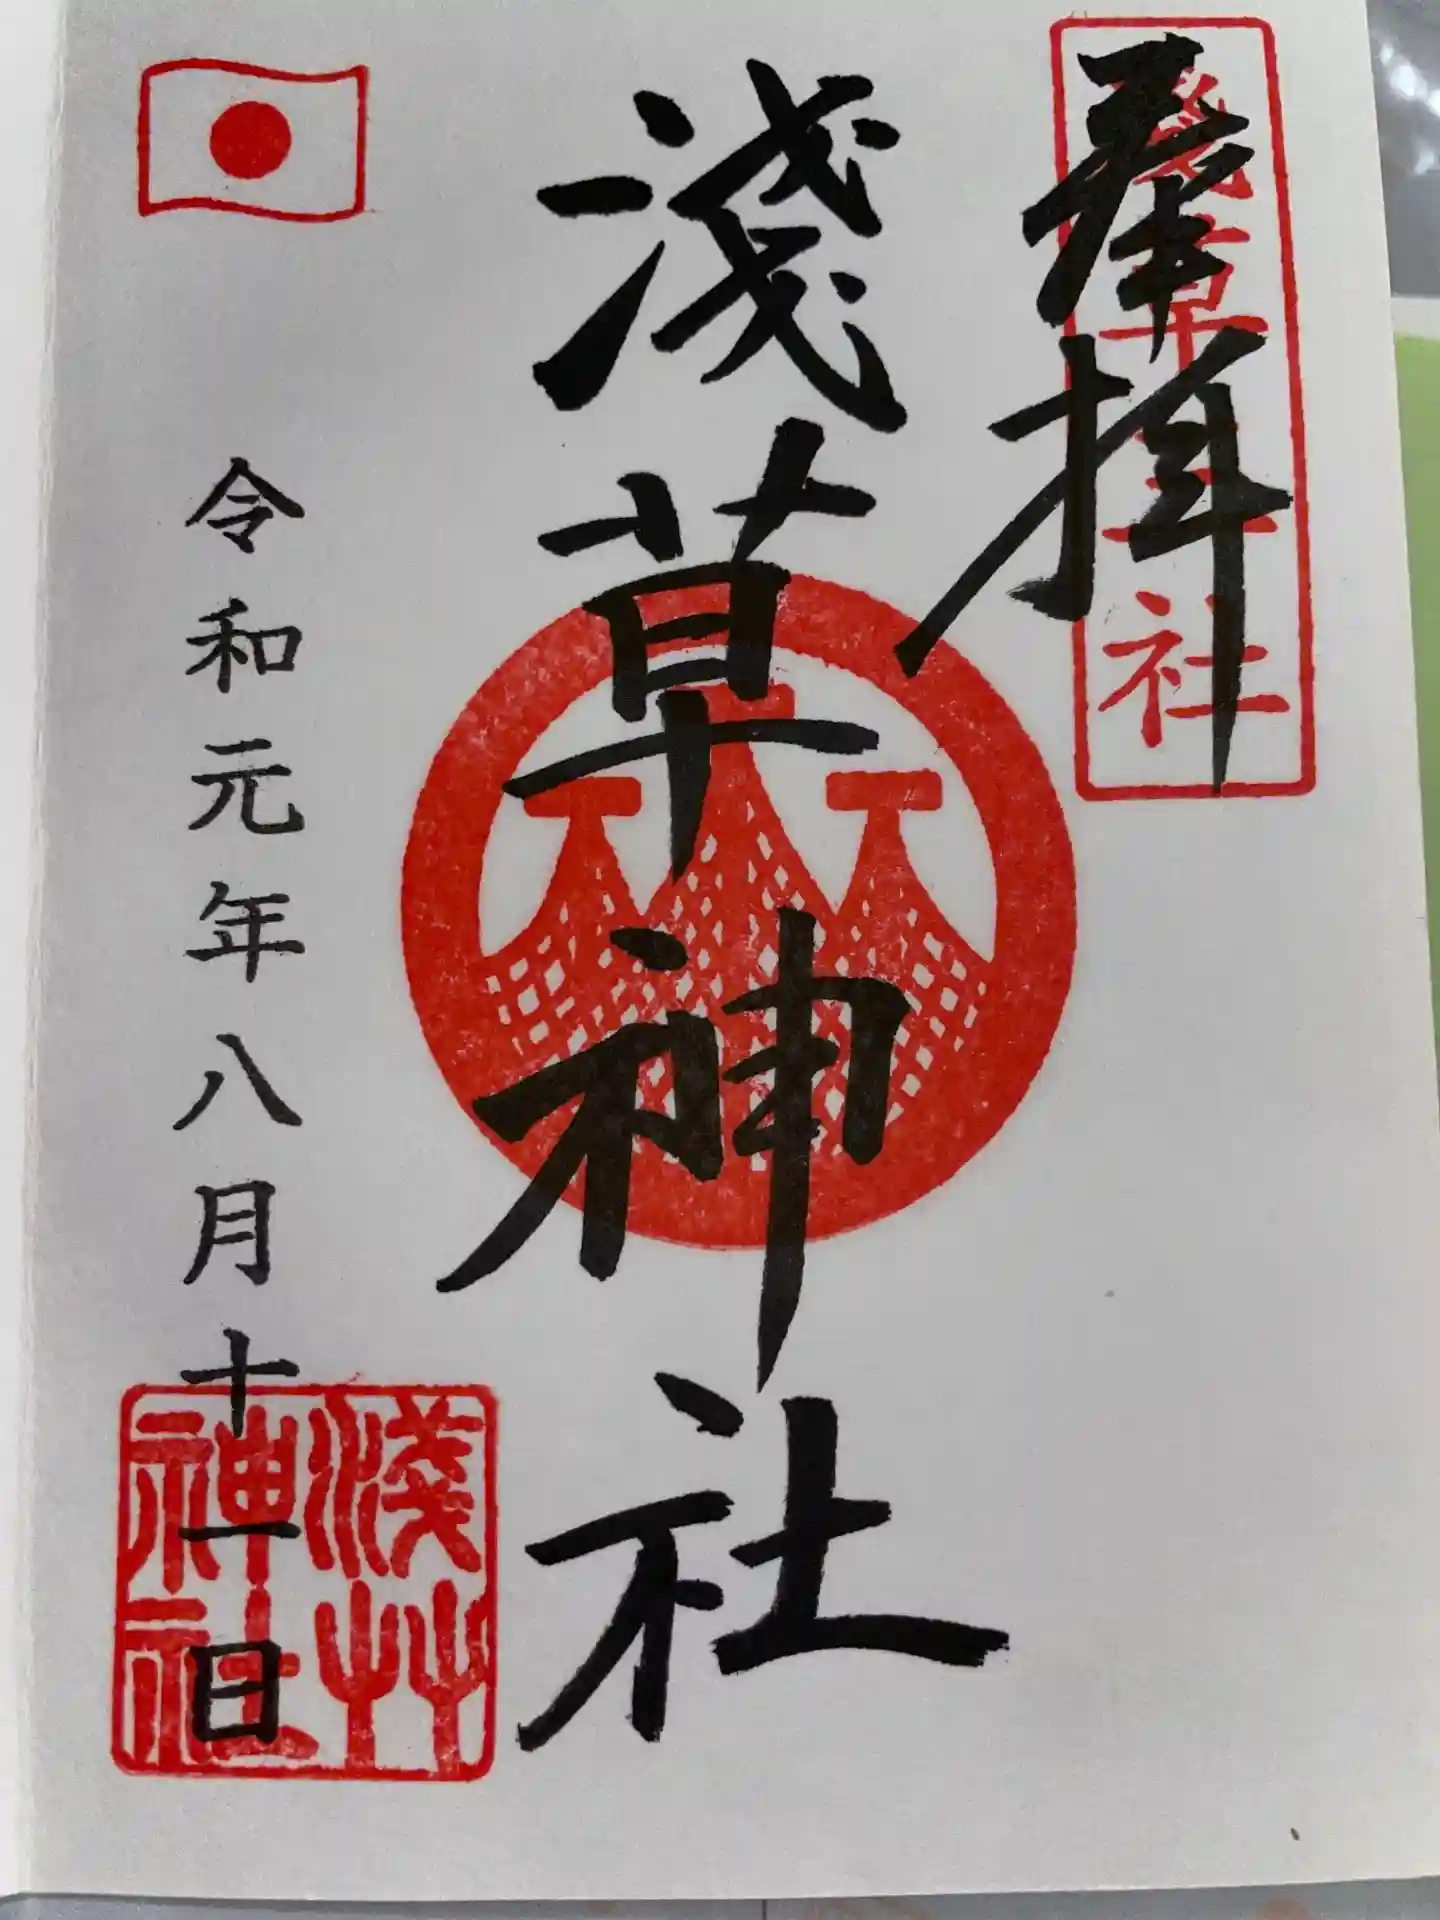 奉拝
浅草三社
淺草神社
令和元年八月十一日
淺艸神社